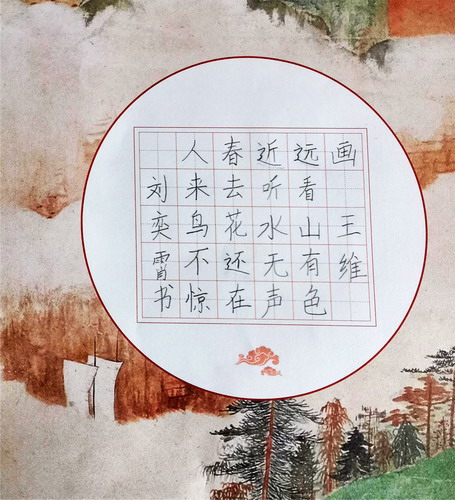 画 王维
远看山有色
近听水无声
春去花还在
人来鸟不惊
刘奕霄书